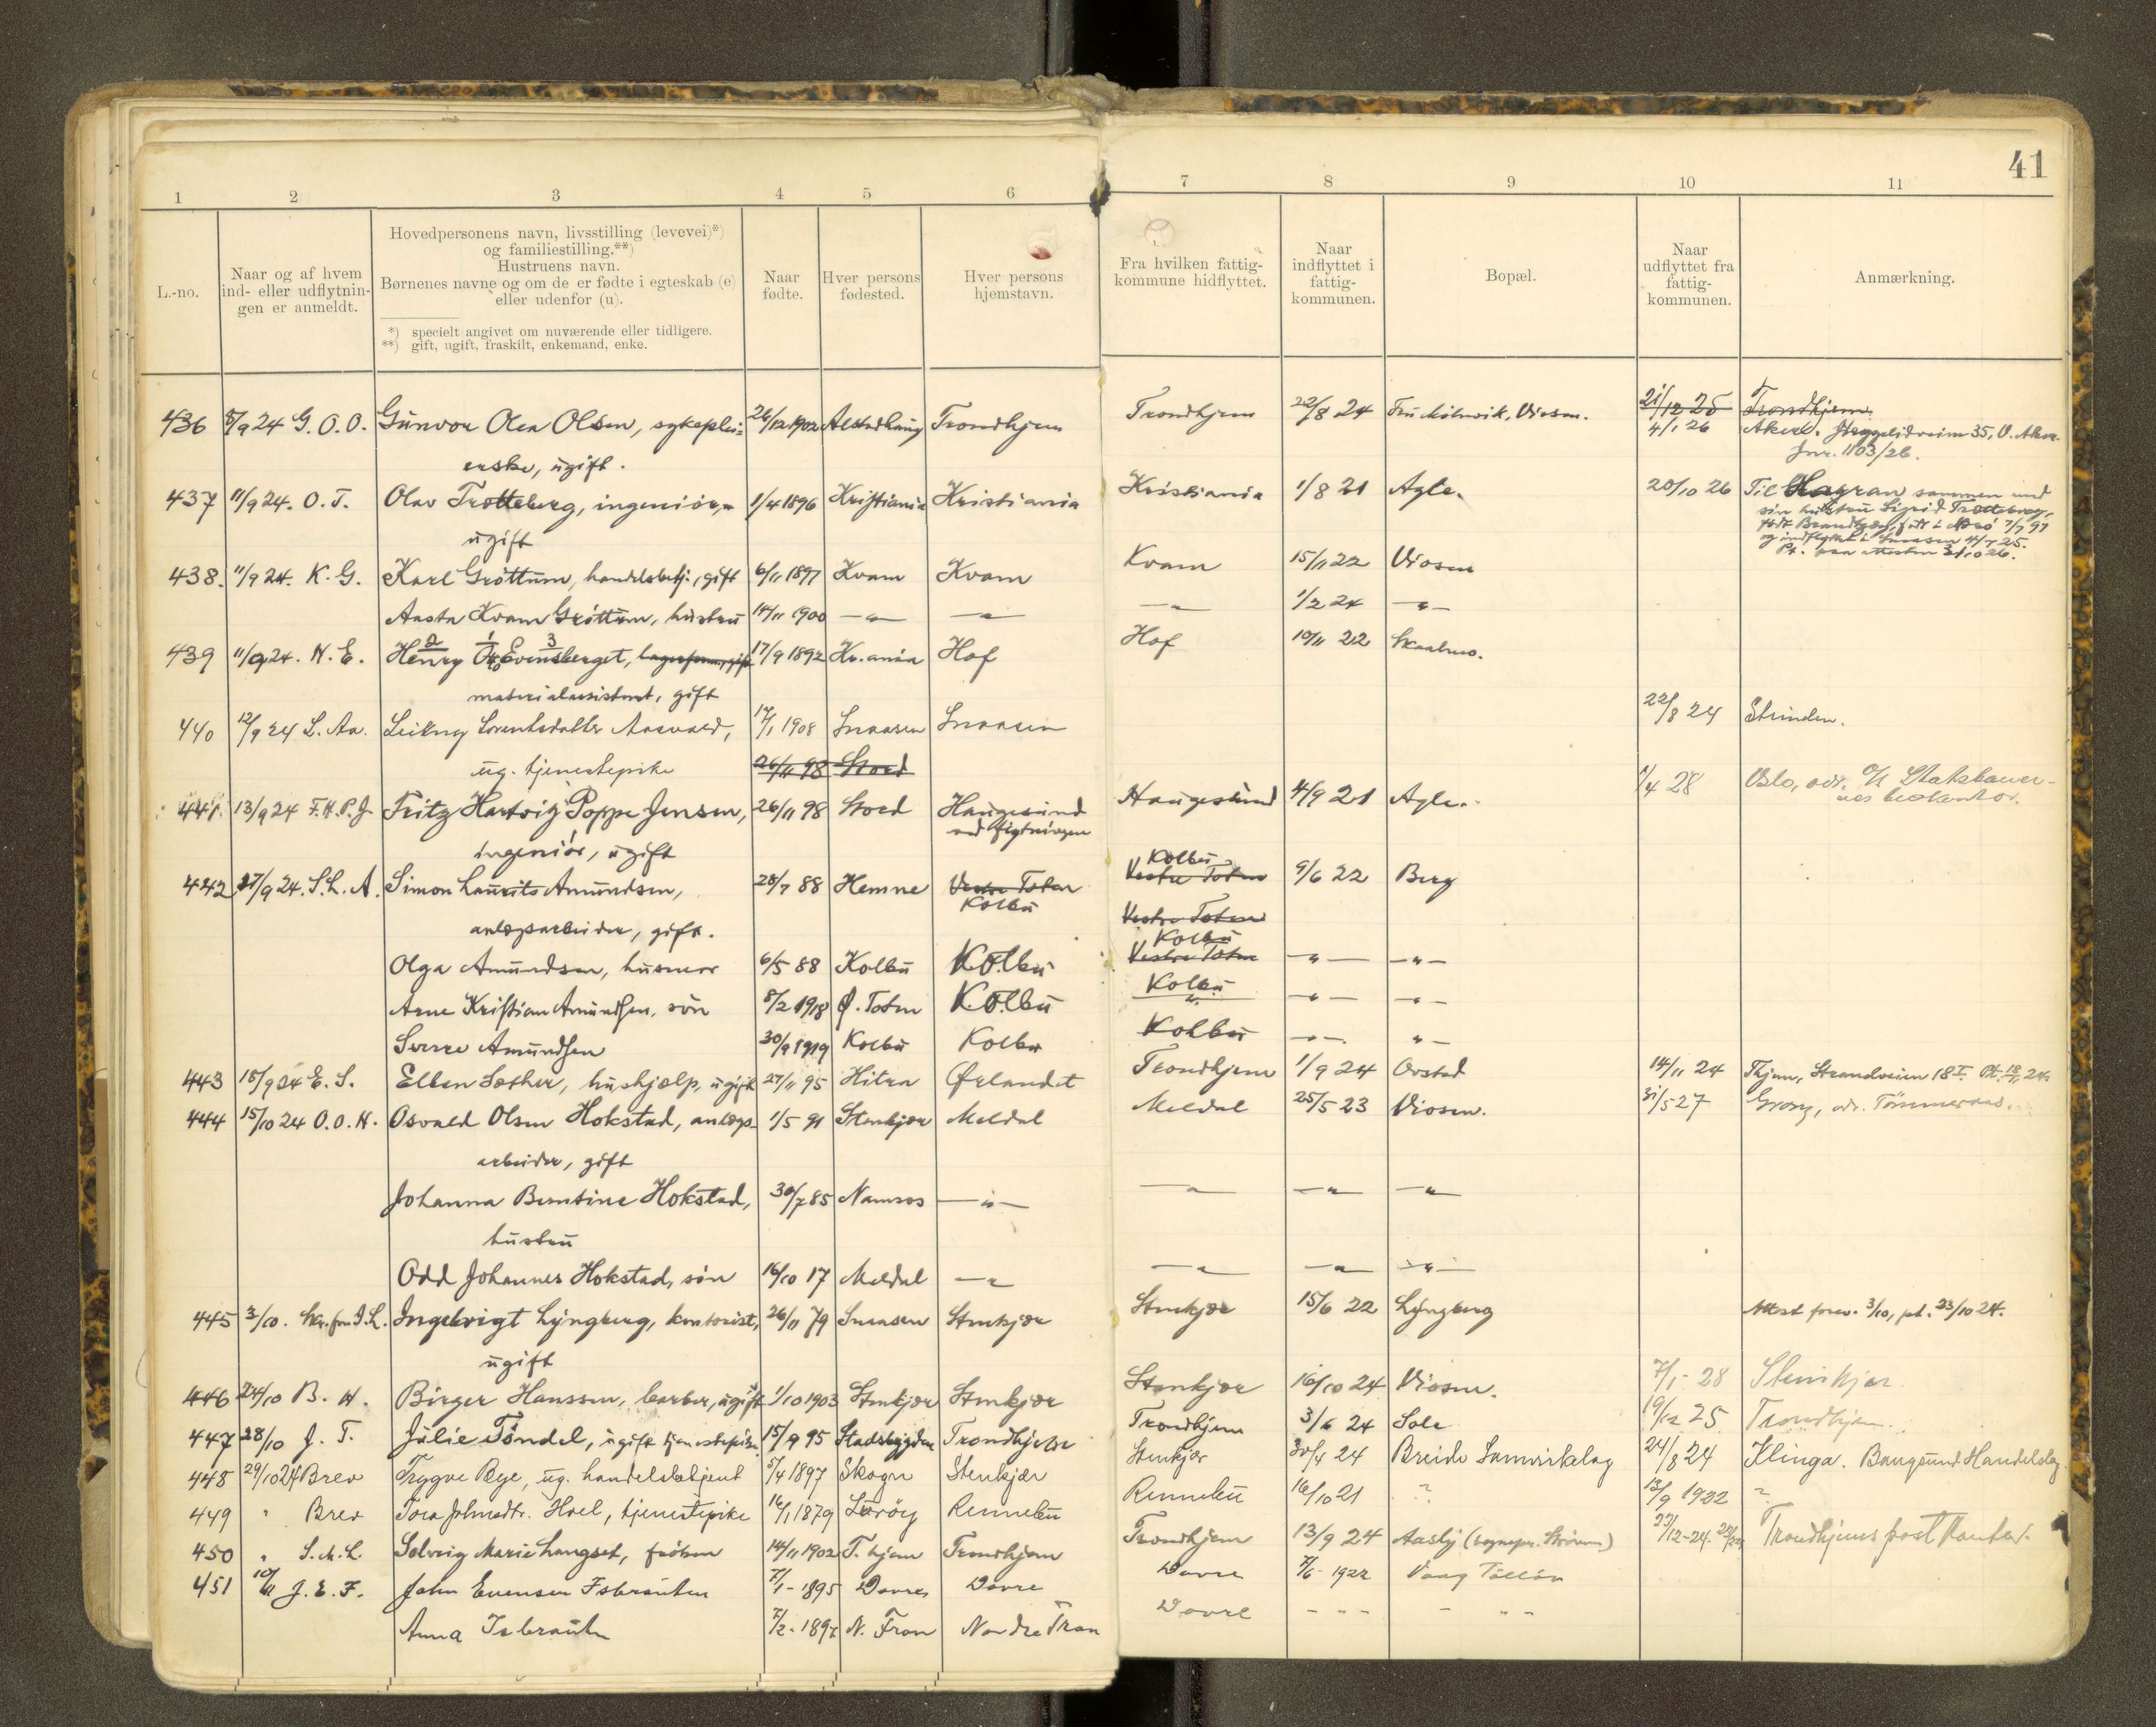 41
1 2 3 4 5 6 7 8 9 10 11
L.-no.
Naar og af hvem
ind- eller udflytnin-
gen er anmeldt.
Hovedpersonens navn, livsstilling (levevei)*)
og familiestilling.**)
Hustruens navn.
Børnenes navne og om de er fødte i egteskab (e)
eller udenfor (u).
*) specielt angivet om nuværende eller tidligere.
**) gift, ugift, fraskilt, enkemand, enke.
Naar
fødte.
Hver persons
fødested.
Hver persons
hjemstavn.
Fra hvilken fattig-
kommune hidflyttet.
Naar
indflyttet i
fattig-
kommunen.
Bopæl.
Naar
udflyttet fra
fattig-
kommunen.
Anmærkning.
436 8/9 24 G. O. O. Gunvor Olea Olsen, sykeplei= 26/12 1902 Alstadhaug Trondhjem Trondhjem 22/8 24 Fru Holmvik, Viosen. 21/12 25 Trondhjem
erske, ugift. 4/1 26 Aker. 35, V. Aker.
Jnr. 1103/26.
437 11/9 24. O. T. Olav Trotteberg, ingeniör, 1/4 1896 Kristiania Kristiania Kristiania 1/8 21 Agle. 20/10 26 Til sammen med
sin hustru Sigrid Trotteberg,
ugift født 7/7 97
og indflyttet i Snaasen 4/7 25.
438. 11/9 24. K. G. Karl Gröttum, handelsbetj., gift 6/11 1897 Kvam Kvam Kvam 15/11 22 Viosen
Aasta Kvam Gröttum, hustru 14/11 1900 —"— —"— —"— 1/2 24 —"—
439 11/9 24. H. E. Henry Evensberget, 17/9 1892 Kr.ania Hof Hof 10/11 22 Skaalmo.
materialassistent, gift
440 12/9 24 L. Aa. Leikny Lorentsdatter Aasvold, 17/1 1908 Snaasen Snaasen 22/8 24 Strinden.
ug. tjenestepike 26/11 98 Stord
441. 13/9 24 F. H. P. J. Fritz Hartvig Poppe Jensen, 26/11 98 Stord Haugesund Haugesund 4/9 21 Agle. 1/4 28 Oslo, adr. Statsbaner-
ingeniör, ugift
442 27/9 24. S. L. A. Simon Laurits Amundsen, 28/7 88 Hemne Vestre Toten Kolbu Kolbu Vestre Toten 9/6 22 Berg
anlegsarbeider, gift. Vestre Toten
Olga Amundsen, husmor 6/5 88 Kolbu Kolbu Kolbu Vestre Toten —"— —"—
Arne Kristian Amundsen, sön 8/2 1918 Ø. Toten Kolbu Kolbu —"— —"—
Sverre Amundsen 30/9 1919 Kolbu Kolbu Kolbu —"— "—
443 15/9 24 E. S. Ellen Sæther, hushjælp, ugift 27/11 95 Hitra Ørlandet Trondhjem 1/9 24 Ovstad 14/11 24 Thjem, Strandveien 18 I. Pt. 18/11 24.
444 15/10 24 O. O. H. Osvald Olsen Hokstad, anlegs- 1/5 91 Stenkjær Meldal Meldal 25/5 23 Viosen. 31/5 27 Grong, adr. Tömmeraas.
arbeider, gift
Johanna Berntine Hokstad, 30/7 85 Namsos —"— —"— —"— —"—
hustru
Odd Johannes Hokstad, sön 16/10 17 Meldal —"— —"— —"— —"—
445 3/10. Skr. fra I. L. Ingebrigt Lyngberg, kontorist, 26/11 79 Snaasen Stenkjær Stenkjær 15/6 22 Lyngberg Attest forev. 3/10, pt. 23/10 24.
ugift
446 24/10 B. H. Birger Hanssen, barber, ugift 1/10 1903 Stenkjær Stenkjær Stenkjær 16/10 24 Viosen. 7/1- 28 Steinkjær
447 28/10 J. T. Julie Töndel, ugift tjenestepike 15/9 95 Stadsbygden Trondhjem Trondhjem 3/6 24 Sole 19/12 25 Trondhjem.
448 29/10 24 Brev Trygve Rye, ug. handelsbetjent 5/4 1897 Skogn Stenkjær Stenkjær 30/4 24 Breide Samvirkelag 24/8 24 Klinga. Bangsund Handelslag
449 " Brev Tora Johnsdtr. Hoel, tjenestepike 16/1 1879 Luröy Rennebu Rennebu 16/10 21 ? 13/9 1922 ?
450 " S. M. L. Solveig Marie Langset, fröken 14/11 1902 T. hjem Trondhjem Trondhjem 13/9 24 Aasly (sognepr. Ström) 23/12-24. Trondhjems post kontor.
451 10/11 J. E. F. John Evensen Isbrauten 7/1- 1895 Dovre Dovre Dovre 7/6- 1922 Vaag
Anna Isbrauten 7/2- 1897 N. Fron Nordre Fron Dovre - " - - " -